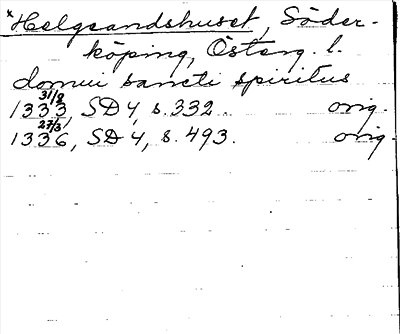 *Helgeandshuset, Söder-
köping, Österg. l.
domui sancti spiritus
1333 31/8, SD 4, s. 332. orig.
1336 27/3, SD 4, s. 493. orig.